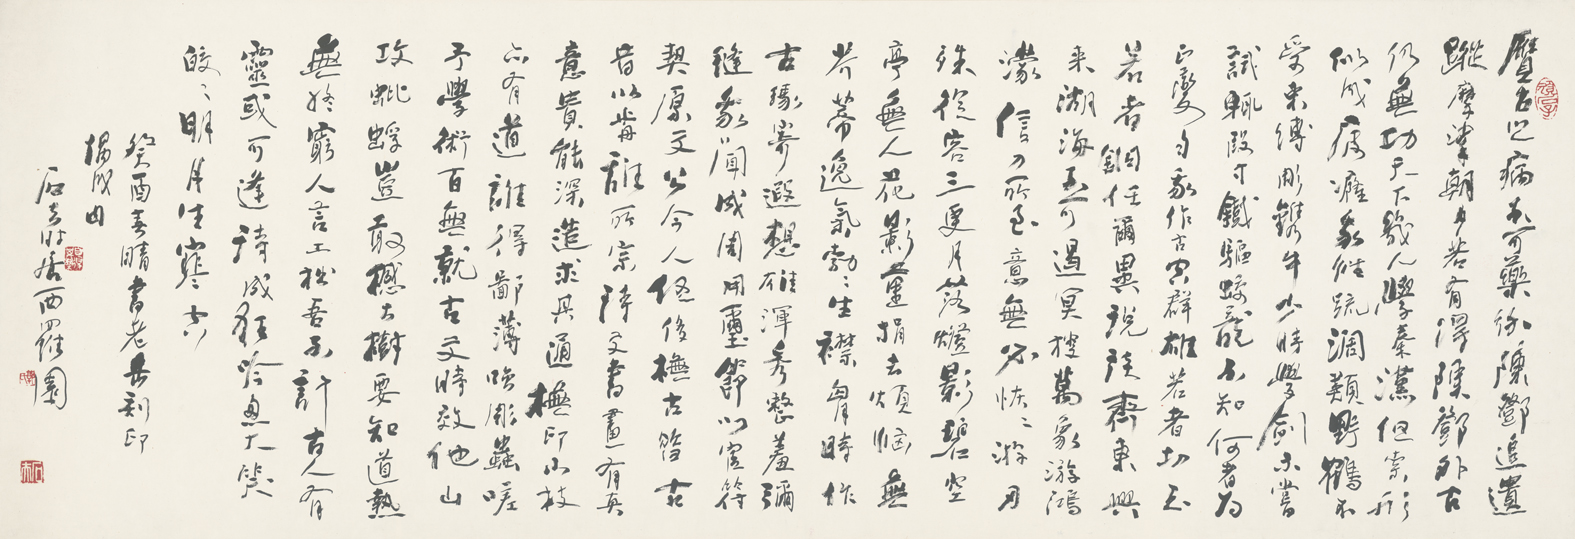 贗古之病不可藥紛陳鄧追遺
蹤摩挲朝夕若有得陳鄧外古
仍無功天下幾人學秦漢但索形
似成疲癃我性疏闊類野鶴不
受束縛彫鐫中少時學劍未嘗
試輒假寸鐵驅蛟龍不知何者為
正變自我作古空群雄若者切玉
若者銅任爾異說談齊東興
來湖海不可遏冥搜萬象游鴻
濛信刀所至意無必恢〻游刃
殊從容三更月落燈影碧空
亭無人花影重捐去煩惱無
芥蒂逸氣勃〻生襟胸時作
古篆寄遐想雄渾秀整羞彌
縫我聞成周用璽節以官符
契原文公今人但侈橅古昔古
昔以前誰所宗詩文書畫有真
意貴能深造求其通橅印小技
亦有道誰得鄙薄嗤彫蟲嗟
予學術百無就古文時效他山
攻蚍蜉豈敢撼大樹要知道藝
無終窮人言工拙吾不計古人有
靈或可逢詩成狂吟鬼大笑
皎〻明月生寒空
癸酉春晴書老缶刻印
時居西羅園